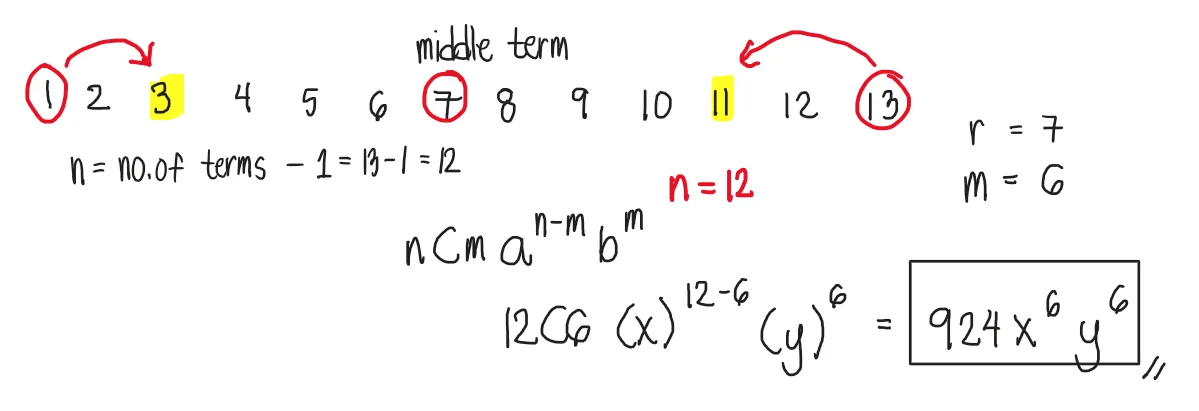 middle term
1 2 3 4 5 6 7 8 9 10 11 12 13
n = no.of terms - 1 = 13 - 1 = 12
r = 7
n = 12
m = 6
nCm a^{n-m} b^{m}
12C6 (x)^{12-6} (y)^{6} = 924x^{6} y^{6} //